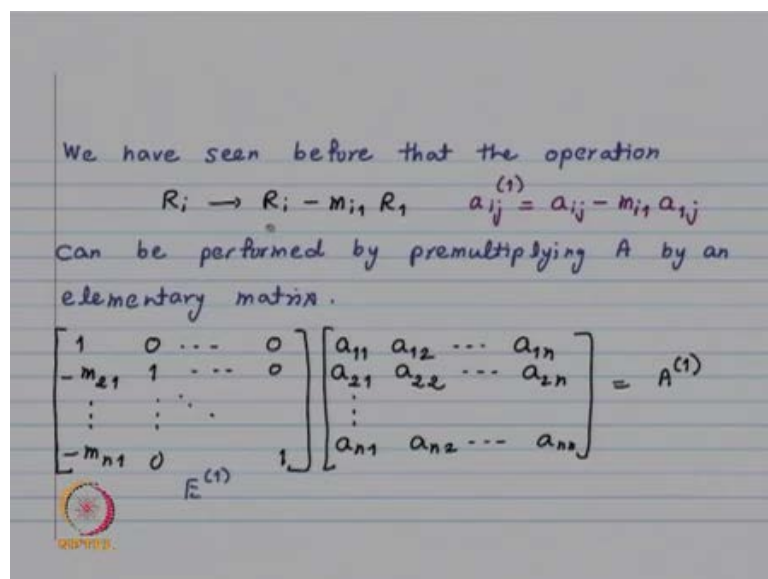 We have seen before that the operation
Rᵢ → Rᵢ − mᵢ₁ R₁   aᵢⱼ⁽¹⁾ = aᵢⱼ − mᵢ₁ a₁ⱼ
can be performed by premultiplying A by an
elementary matrix.
[ 1 0 ... 0 ] [ a₁₁ a₁₂ ... a₁ₙ ]
[ −m₂₁ 1 ... 0 ] [ a₂₁ a₂₂ ... a₂ₙ ] = A⁽¹⁾
[ ⋮ ⋮ ⋱ ] [ ⋮ ]
[ −mₙ₁ 0 1 ] [ aₙ₁ aₙ₂ ... aₙₙ ]
E⁽¹⁾